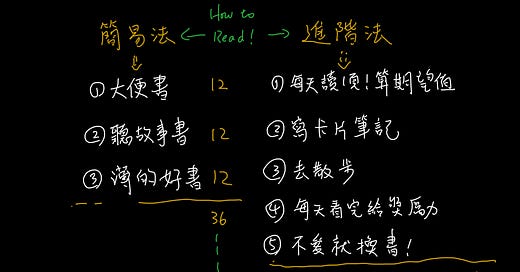 How to
簡易法 ← Read! → 進階法
① 大便書 12
② 聽故事書 12
③ 薄的好書 12
36
① 每天讀1頁!算期望值
② 寫卡片筆記
③ 去散步
④ 每天看完給獎勵
⑤ 不愛就換書!